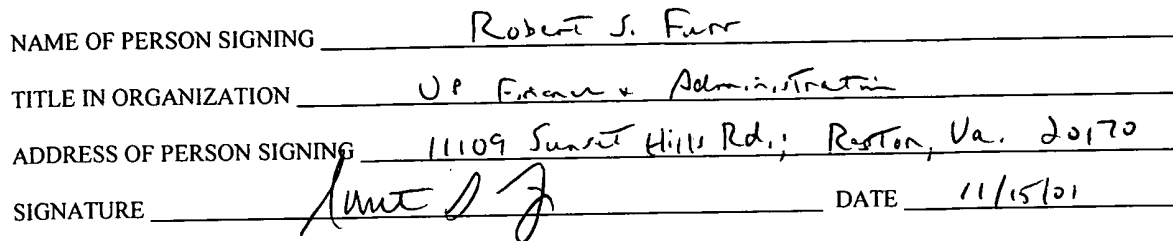 NAME OF PERSON SIGNING Robert S. Furr
TITLE IN ORGANIZATION VP Finance & Administration
ADDRESS OF PERSON SIGNING 11109 Sunset Hills Rd.; Reston, Va. 20190
SIGNATURE DATE 11/15/01